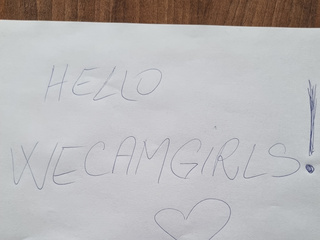 HELLO
WECAMGiRLS!